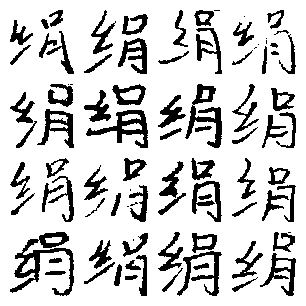 绢绢绢绢
绢绢绢绢
绢绢绢绢
绢绢绢绢